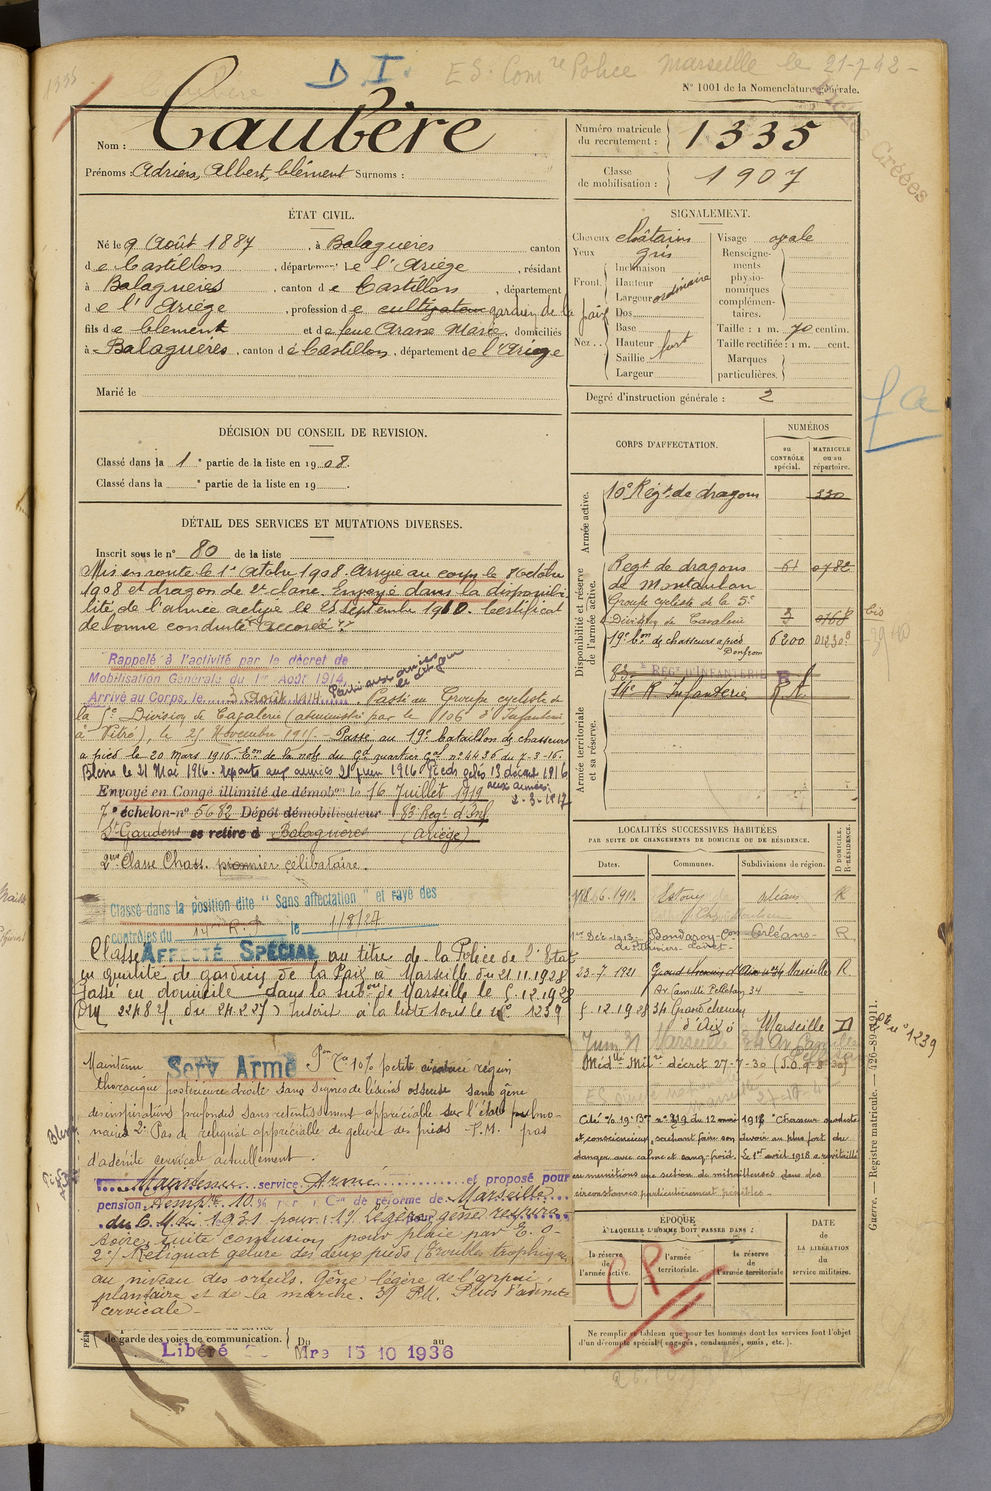 1335
D I.
ES. Com.re Police Marseille le 21-7-42-
N° 1001 de la Nomenclature générale.
Créées
Nom : Caubère
Prénoms : Adrien, Albert, Clément Surnoms :
Numéro matricule du recrutement : 1335
Classe de mobilisation : 1907
ÉTAT CIVIL.
Né le 9 Août 1887, à Balaguères canton
de Castillon, département de l'Ariège, résidant
à Balaguères, canton de Castillon, département
de l'Ariège, profession de cultivateur gardien de la paix
fils de Clément et de feue Arasse Marie, domiciliés
à Balaguères, canton de Castillon, département de l'Ariège
Marié le
SIGNALEMENT.
Cheveux châtains
Yeux gris
Front. Inclinaison
Hauteur
Largeur ordinaire
Nez. Dos
Base
Hauteur fort
Saillie
Largeur
Visage ovale
Renseignements physionomiques complémentaires.
Taille : 1 m. 70 centim.
Taille rectifiée : 1 m. cent.
Marques particulières.
Degré d'instruction générale : 2
DÉCISION DU CONSEIL DE REVISION.
Classé dans la 1e partie de la liste en 1908.
Classé dans la e partie de la liste en 19
DÉTAIL DES SERVICES ET MUTATIONS DIVERSES.
Inscrit sous le n° 80 de la liste
Mis en route le 1er Octobre 1908. Arrivé au corps le Octobre
1908 et dragon de 2e classe. Envoyé dans la disponibi
lité de l'armée active le 25 septembre 1910. Certificat
de bonne conduite accordé
Rappelé à l'activité par le décret de
Mobilisation Générale du 1er Août 1914,
Arrivé au Corps, le 3 Août 1914. Passé au Groupe cycliste de
la 5e Division de Cavalerie (administré par le 106 d'Infanterie
à Vitré), le 25 Novembre 1915. Passé au 19e bataillon de chasseurs
à pied le 20 Mars 1916. Eon de la note du Gd quartier Gal n° 4436 du 7-3-16.
Blessé le 21 Mai 1916. reparti aux armées 21 juin 1916. Pieds gelés 13 décembre 1916
aux armées 2-3-1917
Envoyé en Congé illimité de démobon le 16 Juillet 1919
7e échelon n° 5682 Dépôt démobilisateur 83 Regt d'Inf
St Gaudens se retire à Balaguères (Ariège)
2me Classe Chass. célibataire.
Classé dans la position dite "Sans affectation" et rayé des
contrôles du 14e R.I. le 1/8/27
Classé AFFECTÉ SPÉCIAL au titre de la Police de l'Etat
en qualité de gardien de la Paix à Marseille du 21.11.1928
Passé en domicile dans la subon de Marseille le 5.12.1928
Inscrit à la liste sous le n° 1239
Maintenu Serv Armé Pon Tre 10% petite cicatrice région
thoracique postérieure droite sans signes de lésions osseuse sans gêne
des inspirations profondes sans retentissement appréciable sur l'état pulmo-
naire 2° Pas de reliquat appréciable de gelure des pieds - P.M. pas
d'adénite cervicale actuellement.
Maintenu service Armé et proposé pour
pension temp.re 10 % par la Con de réforme de Marseille
du 6 Mai 1931 pour : 1°/ légère gêne respira-
toire, suite contusion pour plaie par E.O.
2°/ Reliquat gelure des deux pieds (troubles trophiques
au niveau des orteils. Gêne légère de l'appui,
plantaire et de la marche. 3°/ P.M. Plus d'adénite
cervicale -
de garde des voies de communication. Du au
Libéré Mre 15 10 1936
CORPS D'AFFECTATION.
NUMÉROS
au CONTRÔLE spécial.
MATRICULE ou au répertoire.
Armée active.
10e Régt de dragons 330
Disponibilité et réserve de l'armée active.
Regt de dragons
de Montauban
Groupe cycliste de la 5e
Division de Cavalerie
19e bon de chasseurs à pied 6200
83e RÉGt D'INFANTERIE
14e R Infanterie
Armée territoriale et sa réserve.
LOCALITÉS SUCCESSIVES HABITÉES
PAR SUITE DE CHANGEMENTS DE DOMICILE OU DE RÉSIDENCE.
Dates. Communes. Subdivisions de région. D DOMICILE. R RÉSIDENCE.
Estouy Orléans R
1er Déc. 1913 Bondaroy Con Orléans R
de Pithiviers Loiret
23-7 1921 Grand chemin d'Aix n° 34 Marseille R
Av Camille Pelletan 34
5.12.1928 34 Grand chemin
d'Aix Marseille D
liste n° 1239
Médlle Milre décret 27-7-30 (J.O. 9-8-30)
Cité % 19e Bon n° 319 du 12 mai 1918 "Chasseur modeste
et consciencieux, sachant faire son devoir au plus fort du
danger avec calme et sang-froid. Le 1er avril 1918 a ravitaillé
en munitions une section de mitrailleuses dans des
circonstances particulièrement pénibles -
ÉPOQUE
À LAQUELLE L'HOMME DOIT PASSER DANS :
la réserve de l'armée active.
l'armée territoriale.
la réserve de l'armée territoriale
DATE DE LA LIBÉRATION du service militaire.
CP
Ne remplir ce tableau que pour les hommes dont les services font l'objet
d'un décompte spécial (engagés, condamnés, omis, etc.).
Guerre. — Registre matricule. — 426-89-1911.